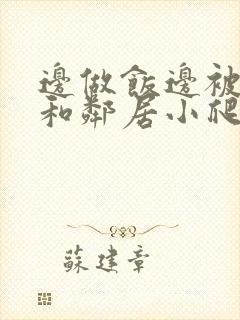 邊做飯邊被
和鄰居小爬
蘇建章